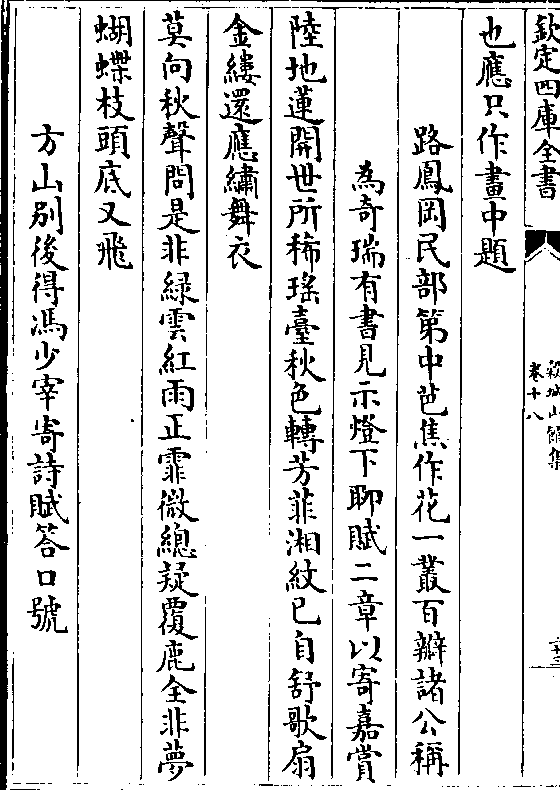 欽定四庫全書
穀城山館集
卷十八
也應只作畫中題
路鳳岡民部第中芭焦作花一叢百瓣諸公稱
為奇瑞有書見示燈下聊賦二章以寄嘉賞
陸地蓮開世所稀瑤臺秋色轉芳菲湘紋已自舒歌扇
金縷還應繡舞衣
莫向秋聲問是非綠雲紅雨正霏微總疑覆鹿全非夢
蝴蝶枝頭底又飛
方山別後得馮少宰寄詩賦答口號